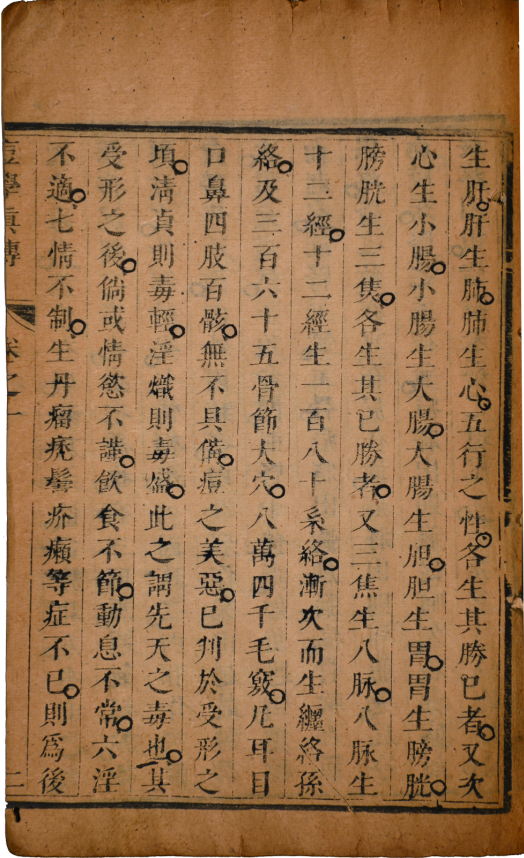 生肝。肝生肺。肺生心。五行之性。各生其勝已者。又次
心生小腸。小腸生大腸。大腸生胆。胆生胃。胃生膀胱。
膀胱生三焦。各生其已勝者。又三焦生八脉。八脉生
十二經。十二經生一百八十系絡。漸次而生纏絡孫
絡。及三百六十五骨節大穴。八萬四千毛竅。凡耳目
口鼻四肢百骸。無不具備。痘之美惡。已判於受形之
頃。淸貞則毒輕。淫熾則毒盛。此之謂先天之毒也。其
受形之後。倘或情慾不謹。飲食不節。動息不常。六淫
不適。七情不制。生丹瘤疣疥癩等症不已。則為後
痘學真傳 卷之一 二